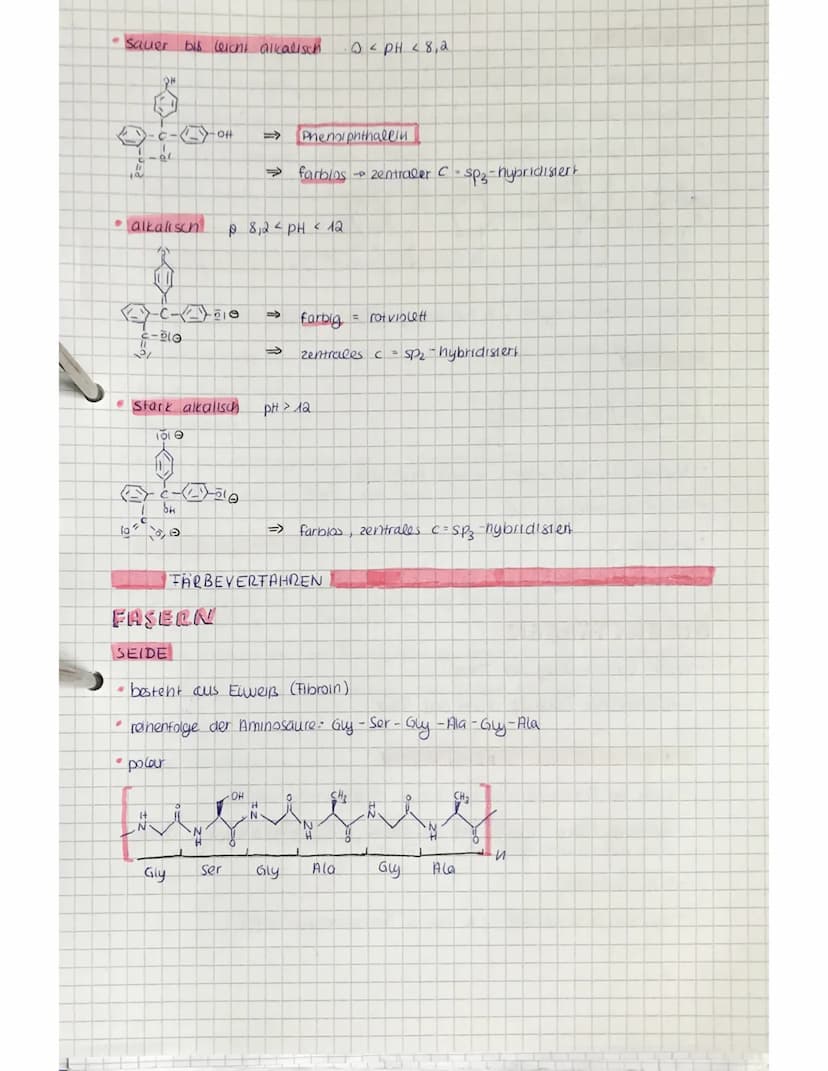 • sauer bis leicht alkalisch 0 < pH < 8,2
OH
-C- -OH ⇒ Phenolphthalein
⇒ farblos → zentraler C = sp3-hybridisiert
• alkalisch 8,2 < pH < 12
-C- -O|⊖ ⇒ farbig = rotviolett
C-O|⊖
⇒ zentrales C = sp2-hybridisiert
• stark alkalisch pH > 12
|O|⊖
-C- -O|⊖
OH
⇒ farblos, zentrales C = sp3-hybridisiert
FÄRBEVERFAHREN
FASERN
SEIDE
• besteht aus Eiweiß (Fibroin)
• reihenfolge der Aminosäure: Gly - Ser - Gly - Ala - Gly - Ala
• polar
H N O N H OH O H N O N H CH3 O H N O N H CH3 O n
Gly Ser Gly Ala Gly Ala